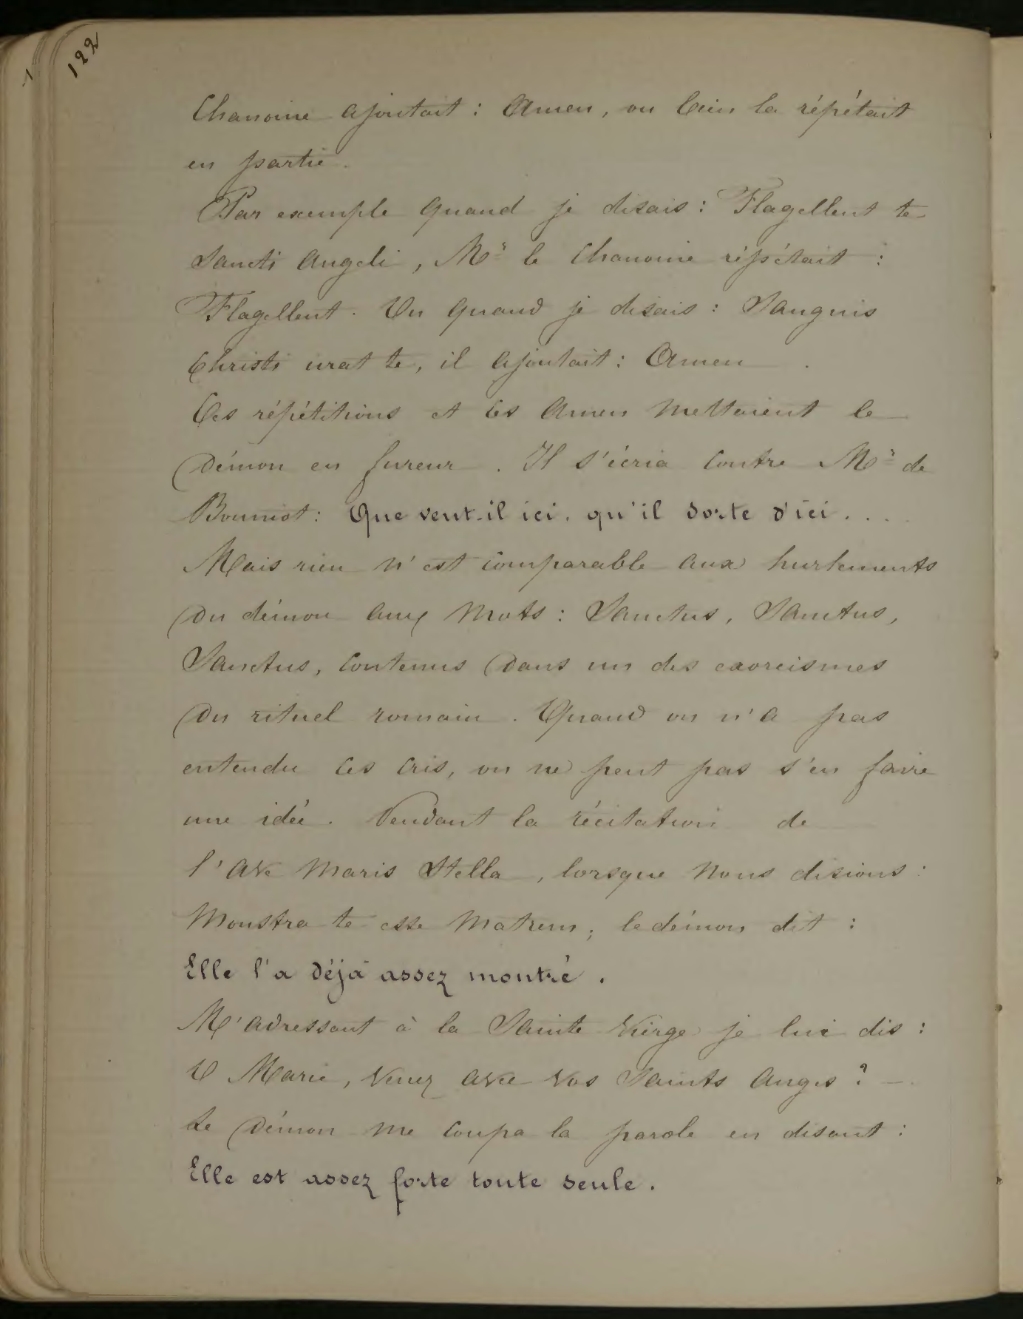 122
Chanoine ajoutait : Amen, ou bien la répétait
en partie.
Par exemple quand je disais : Flagellent te
Sancti Angeli, Mr le Chanoine répétait :
Flagellent. Ou quand je disais : Sanguis
Christi urat te, il ajoutait : Amen.
Ces répétitions et ces Amen mettaient le
Démon en fureur. Il s'écria contre Mr de
Bouniot : Que veut-il ici, qu'il sorte d'ici....
Mais rien n'est comparable aux hurlements
du démon aux mots : Sanctus, Sanctus,
Sanctus, contenus dans un des exorcismes
du rituel romain. Quand on n'a pas
entendu ces cris, on ne peut pas s'en faire
une idée. Pendant la récitation de
l'Ave Maris Stella, lorsque nous disions :
Monstra te esse Matrem ; le démon dit :
Elle l'a déjà assez montré.
M'adressant à la Sainte Vierge je lui dis :
O Marie, venez avec vos Saints Anges ? —
Le Démon me coupa la parole en disant :
Elle est assez forte toute seule.